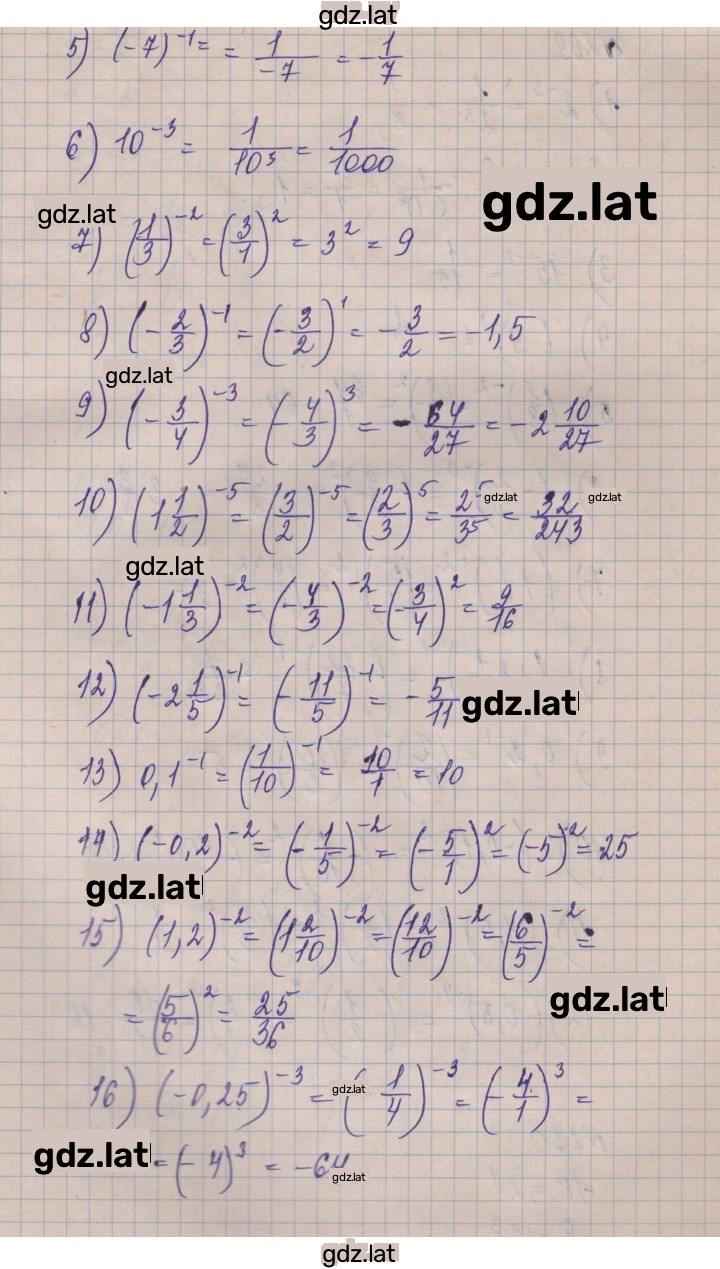 gdz.lat
5) (-7)⁻¹ = = 1/-7 = -1/7
6) 10⁻³ = 1/10³ = 1/1000
gdz.lat
gdz.lat
7) (1/3)⁻² = (3/1)² = 3² = 9
8) (-2/3)⁻¹ = (-3/2)¹ = -3/2 = -1,5
gdz.lat
9) (-3/4)⁻³ = (-4/3)³ = -64/27 = -2 10/27
10) (1 1/2)⁻⁵ = (3/2)⁻⁵ = (2/3)⁵ = 2⁵/3⁵ = 32/243
gdz.lat gdz.lat
gdz.lat
11) (-1 1/3)⁻² = (-4/3)⁻² = (-3/4)² = 9/16
12) (-2 1/5)⁻¹ = (-11/5)⁻¹ = -5/11
gdz.lat
13) 0,1⁻¹ = (1/10)⁻¹ = 10/1 = 10
14) (-0,2)⁻² = (-1/5)⁻² = (-5/1)² = (-5)² = 25
gdz.lat
15) (1,2)⁻² = (1 2/10)⁻² = (12/10)⁻² = (6/5)⁻² =
gdz.lat
= (5/6)² = 25/36
16) (-0,25)⁻³ = (1/4)⁻³ = (-4/1)³ =
gdz.lat
gdz.lat
= (-4)³ = -64
gdz.lat
gdz.lat